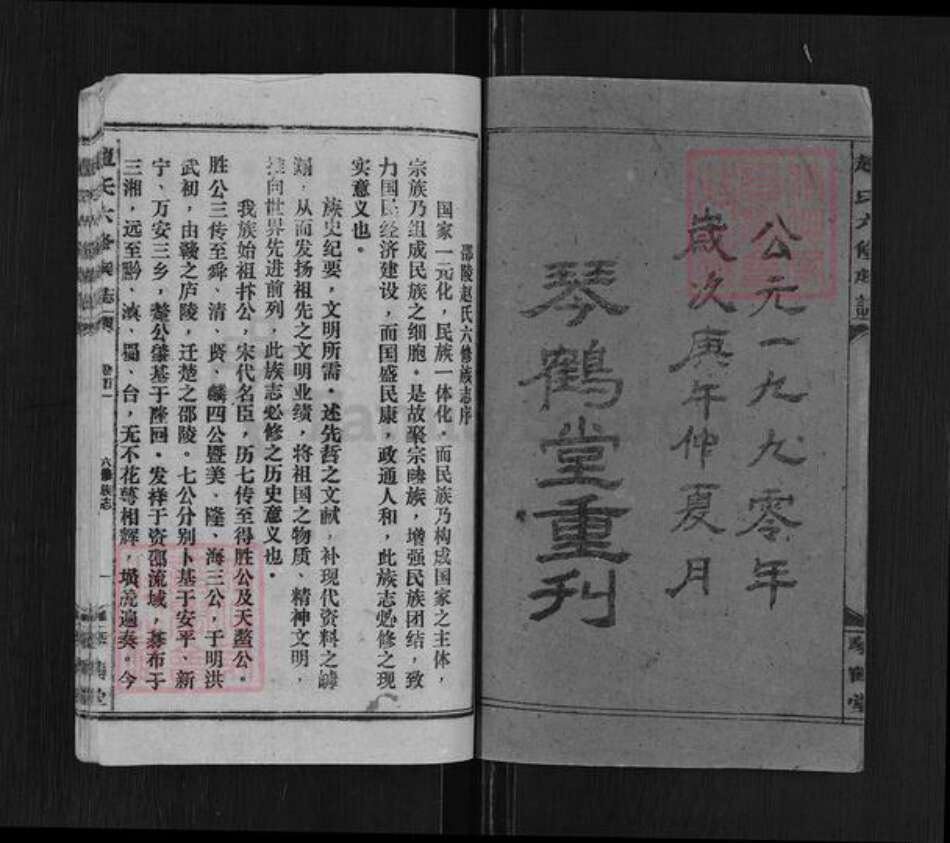 公元一九九零年
歲次庚午仲夏月
琴鶴堂重刊
邵陵赵氏六修族志序
国家一元化，民族一体化。而民族乃构成国家之主体，
宗族乃组成民族之细胞。是故聚宗睦族，增强民族团结，致
力国民经济建设，而国盛民康，政通人和，此族志必修之现
实意义也。
族史纪要，文明所需。述先哲之文献，补现代资料之
，从而发扬祖先之文明业绩，将祖国之物质、精神文明，
推向世界先进前列，此族志必修之历史意义也。
我族始祖抃公，宋代名臣，历七传至得胜公及天螯公。
胜公三传至舜、清、贤、麟四公暨美、隆、海三公，于明洪
武初，由赣之庐陵，迁楚之邵陵。七公分别卜基于安平、新
宁、万安三乡，螯公肇基于隆回。发祥于资邵流域，棊布于
三湘，远至黔、滇、蜀、台，无不花萼相辉，埙篪遍奏。今
赵氏六修
六修族志
一
琴鶴堂